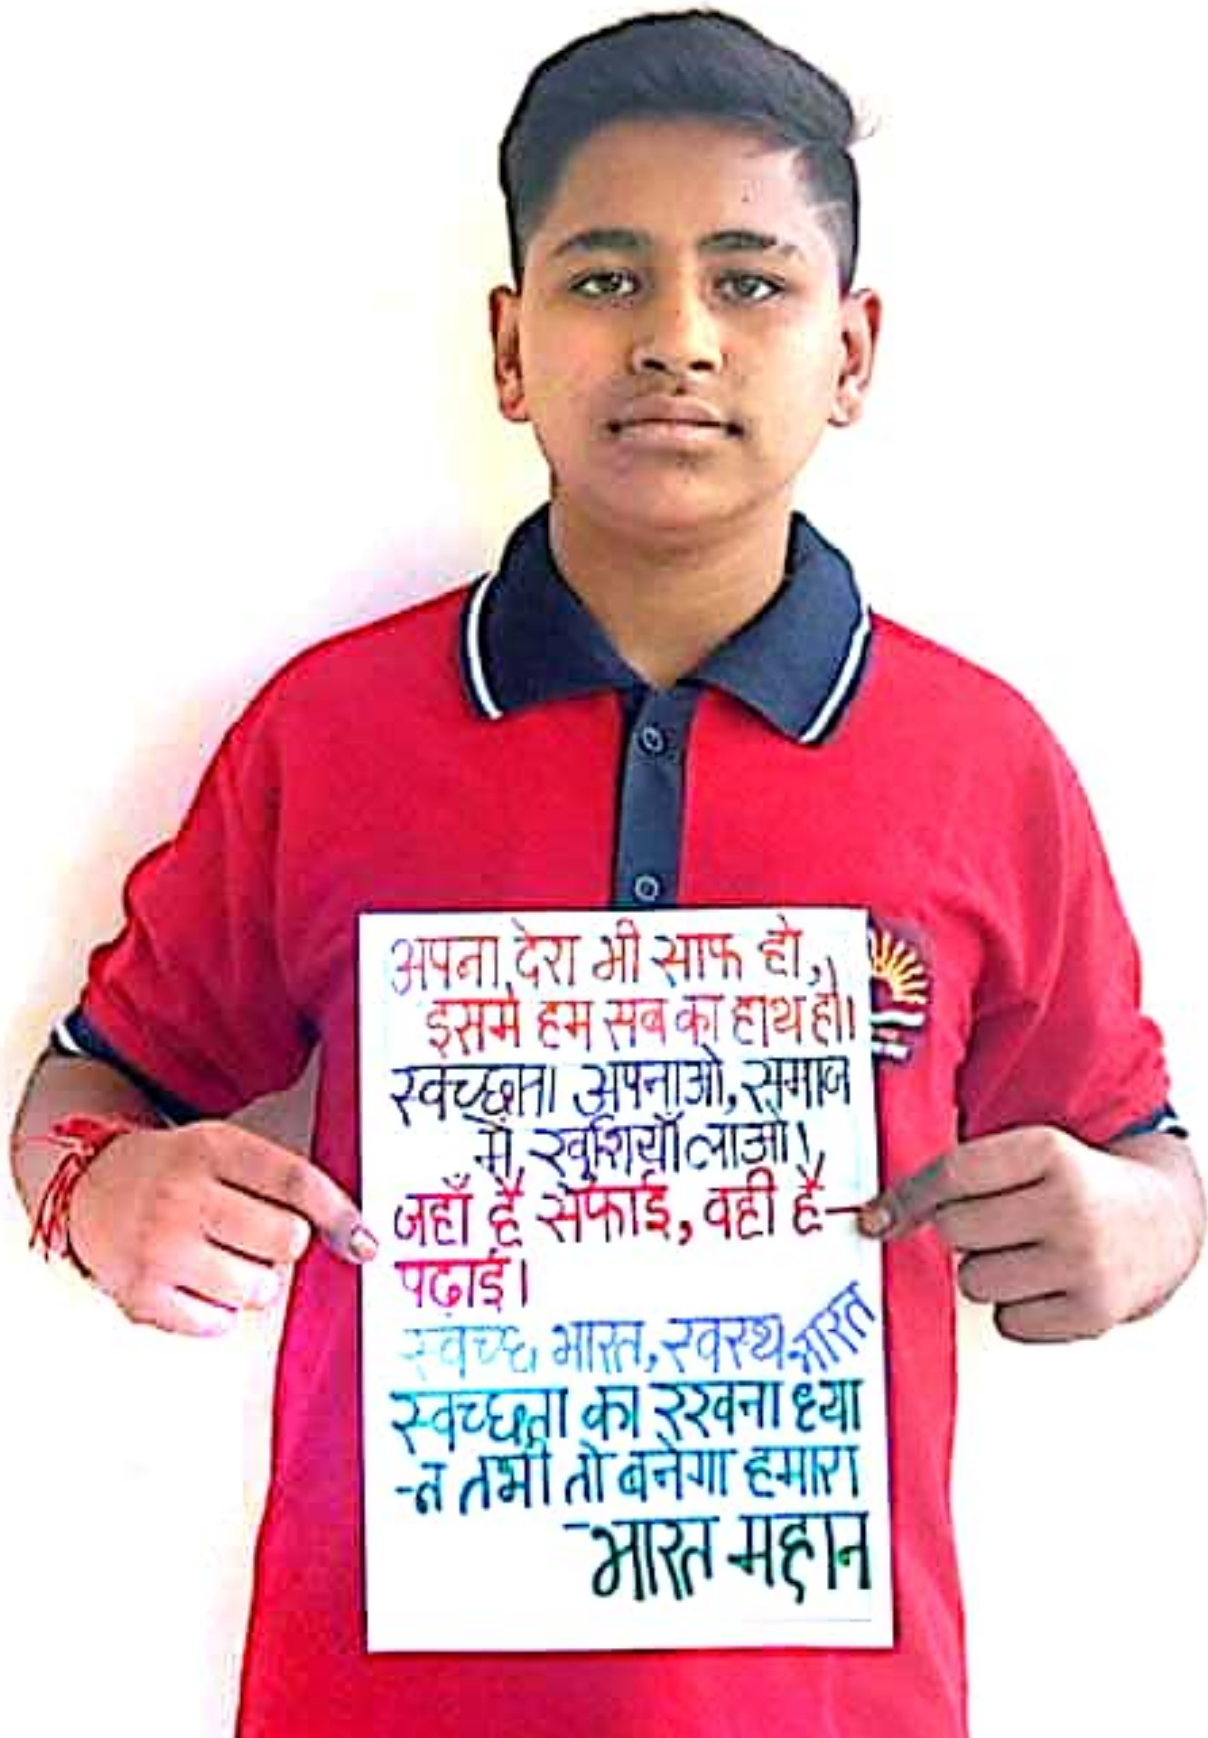 अपना देश भी साफ हो,
इसमे हम सब का हाथ हो।
स्वच्छता अपनाओ, समाज
में खुशियाँ लाओ।
जहाँ है सफाई, वही है-
पढ़ाई।
स्वच्छ भारत, स्वस्थ भारत
स्वच्छता का रखना ध्या
-न तभी तो बनेगा हमारा
-भारत महान